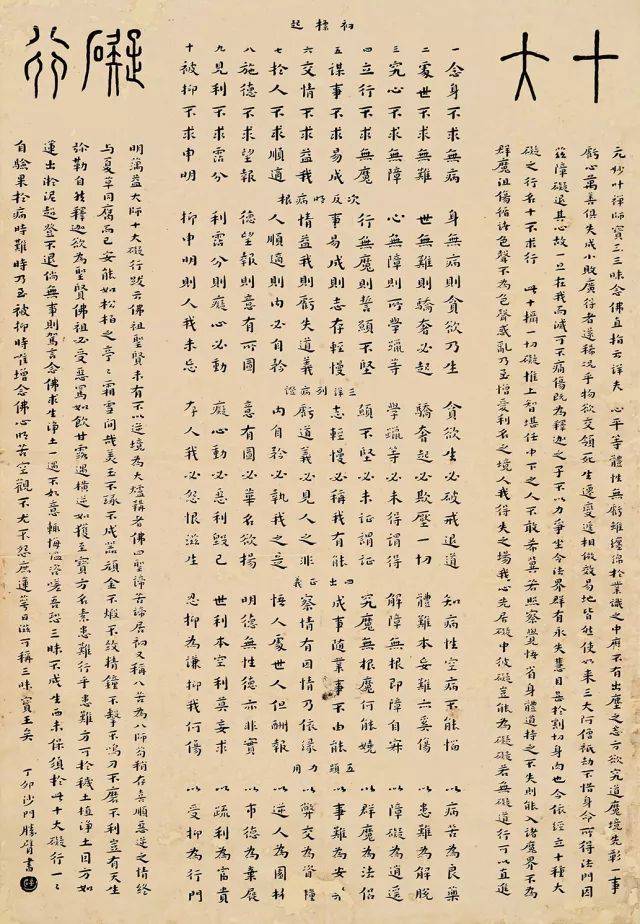 十大
礙行
元妙叶禪師寶王三昧念佛直指云詳夫 心平等體性無虧雖纏綿於業識之中而不有出塵之志方欲究道魔境先彰一事
虧心萬善俱失成小敗廣得者還稀況乎物欲交傾死生遷變遞相倣效易地皆然使如來三大阿僧祇劫不惜身命所得法門因
茲障礙退其心故一旦在我而滅可不痛傷既為釋迦之子不以力爭坐令法界群有永失慧目甚於割切身肉也今依經立十種大
礙之行名十不求行 此十攝一切礙推上智堪任中下之人不敢希冀若照察覺悟省身體道持之不失則能入諸魔界不為
群魔沮傷循諸色聲不為色聲惑亂乃至憎愛利名之境人我得失之場我心先居礙中彼礙豈能為礙礙若無礙道行可以直進
初標起
一念身不求無病
二處世不求無難
三究心不求無障
四立行不求無魔
五謀事不求易成
六交情不求益我
七於人不求順適
八施德不求望報
九見利不求霑分
十被抑不求申明
次反明病根
身無病則貪欲乃生
世無難則驕奢必起
心無障則所學躐等
行無魔則誓願不堅
事易成則志存輕慢
情益我則虧失道義
人順適則內必自矜
德望報則意有所圖
利霑分則癡心必動
抑申明則人我未忘
三詳列病證
貪欲生必破戒退道
驕奢起必欺壓一切
學躐等必未得謂得
願不堅必未證謂證
志輕慢必稱我有能
虧道義必見人之非
內自矜必執我之是
意有圖必華名欲揚
癡心動必惡利毀己
存人我必怨恨滋生
四出正義
知病性空病不能惱
體難本妄難亦奚傷
解障無根即障自寂
究魔無根魔何能嬈
成事隨業事不由能
察情有因情乃依緣
悟人處世人但酬報
明德無性德亦非實
世利本空利莫妄求
忍抑為謙抑我何傷
五顯力用
以病苦為良藥
以患難為解脫
以障礙為逍遙
以群魔為法侶
以事難為安樂
以弊交為資糧
以逆人為園林
以市德為棄屣
以疏利為富貴
以受抑為行門
明蕅益大師十大礙行跋云佛祖聖賢未有不以逆境為大爐鞴者佛四聖諦苦諦居初又稱八苦為八師苟稍存喜順惡逆之情終
與夏草同腐而已安能如松柏之亭亭霜雪間哉美玉不琢不成器頑金不煅不致精鐘不擊不鳴刀不磨不利豈有天生
彌勒自然釋迦欲為聖賢佛祖必受惡罵如飲甘露遇橫逆如獲至寶方名素患難行乎患難方可於穢土植淨土因方如
蓮出淤泥超登不退倘無事則駕言念佛求生淨土一遇不如意輒悔溫咨嗟吾恐三昧不成生西未保須於此十大礙行一一
自驗果於病時難時乃至被抑時唯增念佛心明苦空觀不尤不怨庶蓮萼日滋可稱三昧寶王矣
丁卯沙門勝臂書